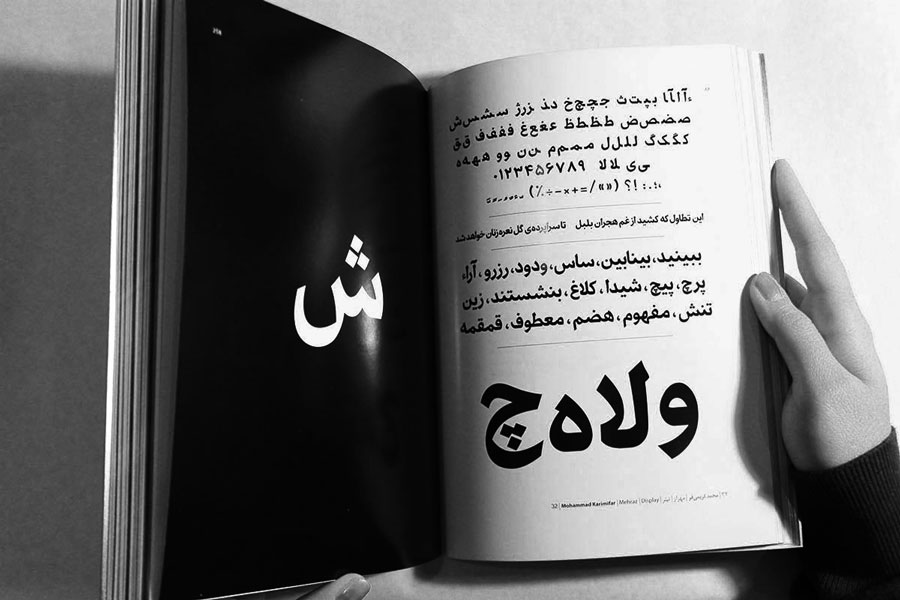 ش
ءآاﺎآ بپتث جچحخ دذ رزژ سشس‌ش
صضص‌ض طظطظ عغع‌غ ففف‌ف ق‌ق
ک‌گ‌ک‌گ للل‌ل ممم‌م ن‌ن وو هه‌ه‌ه
ی‌ی لا لا
۰۱۲۳۴۵۶۷۸۹
(٪÷-×+=/«») ؟!:.؛،
این تطاول که کشید از غم هجران بلبل تا سراپرده‌ی گل نعره‌زنان خواهد شد
ببینید، بینابین، ساس، ودود، رزرو، آراء
پرچ، پیچ، شیدا، کلاغ، بنشستند، زین
تنش، مفهوم، هضم، معطوف، قمقمه
ولاه‌چ
32 | Mohammad Karimifar | Mehraz | Display | تیتر | مهراز | محمد کریمی‌فر | ۳۲